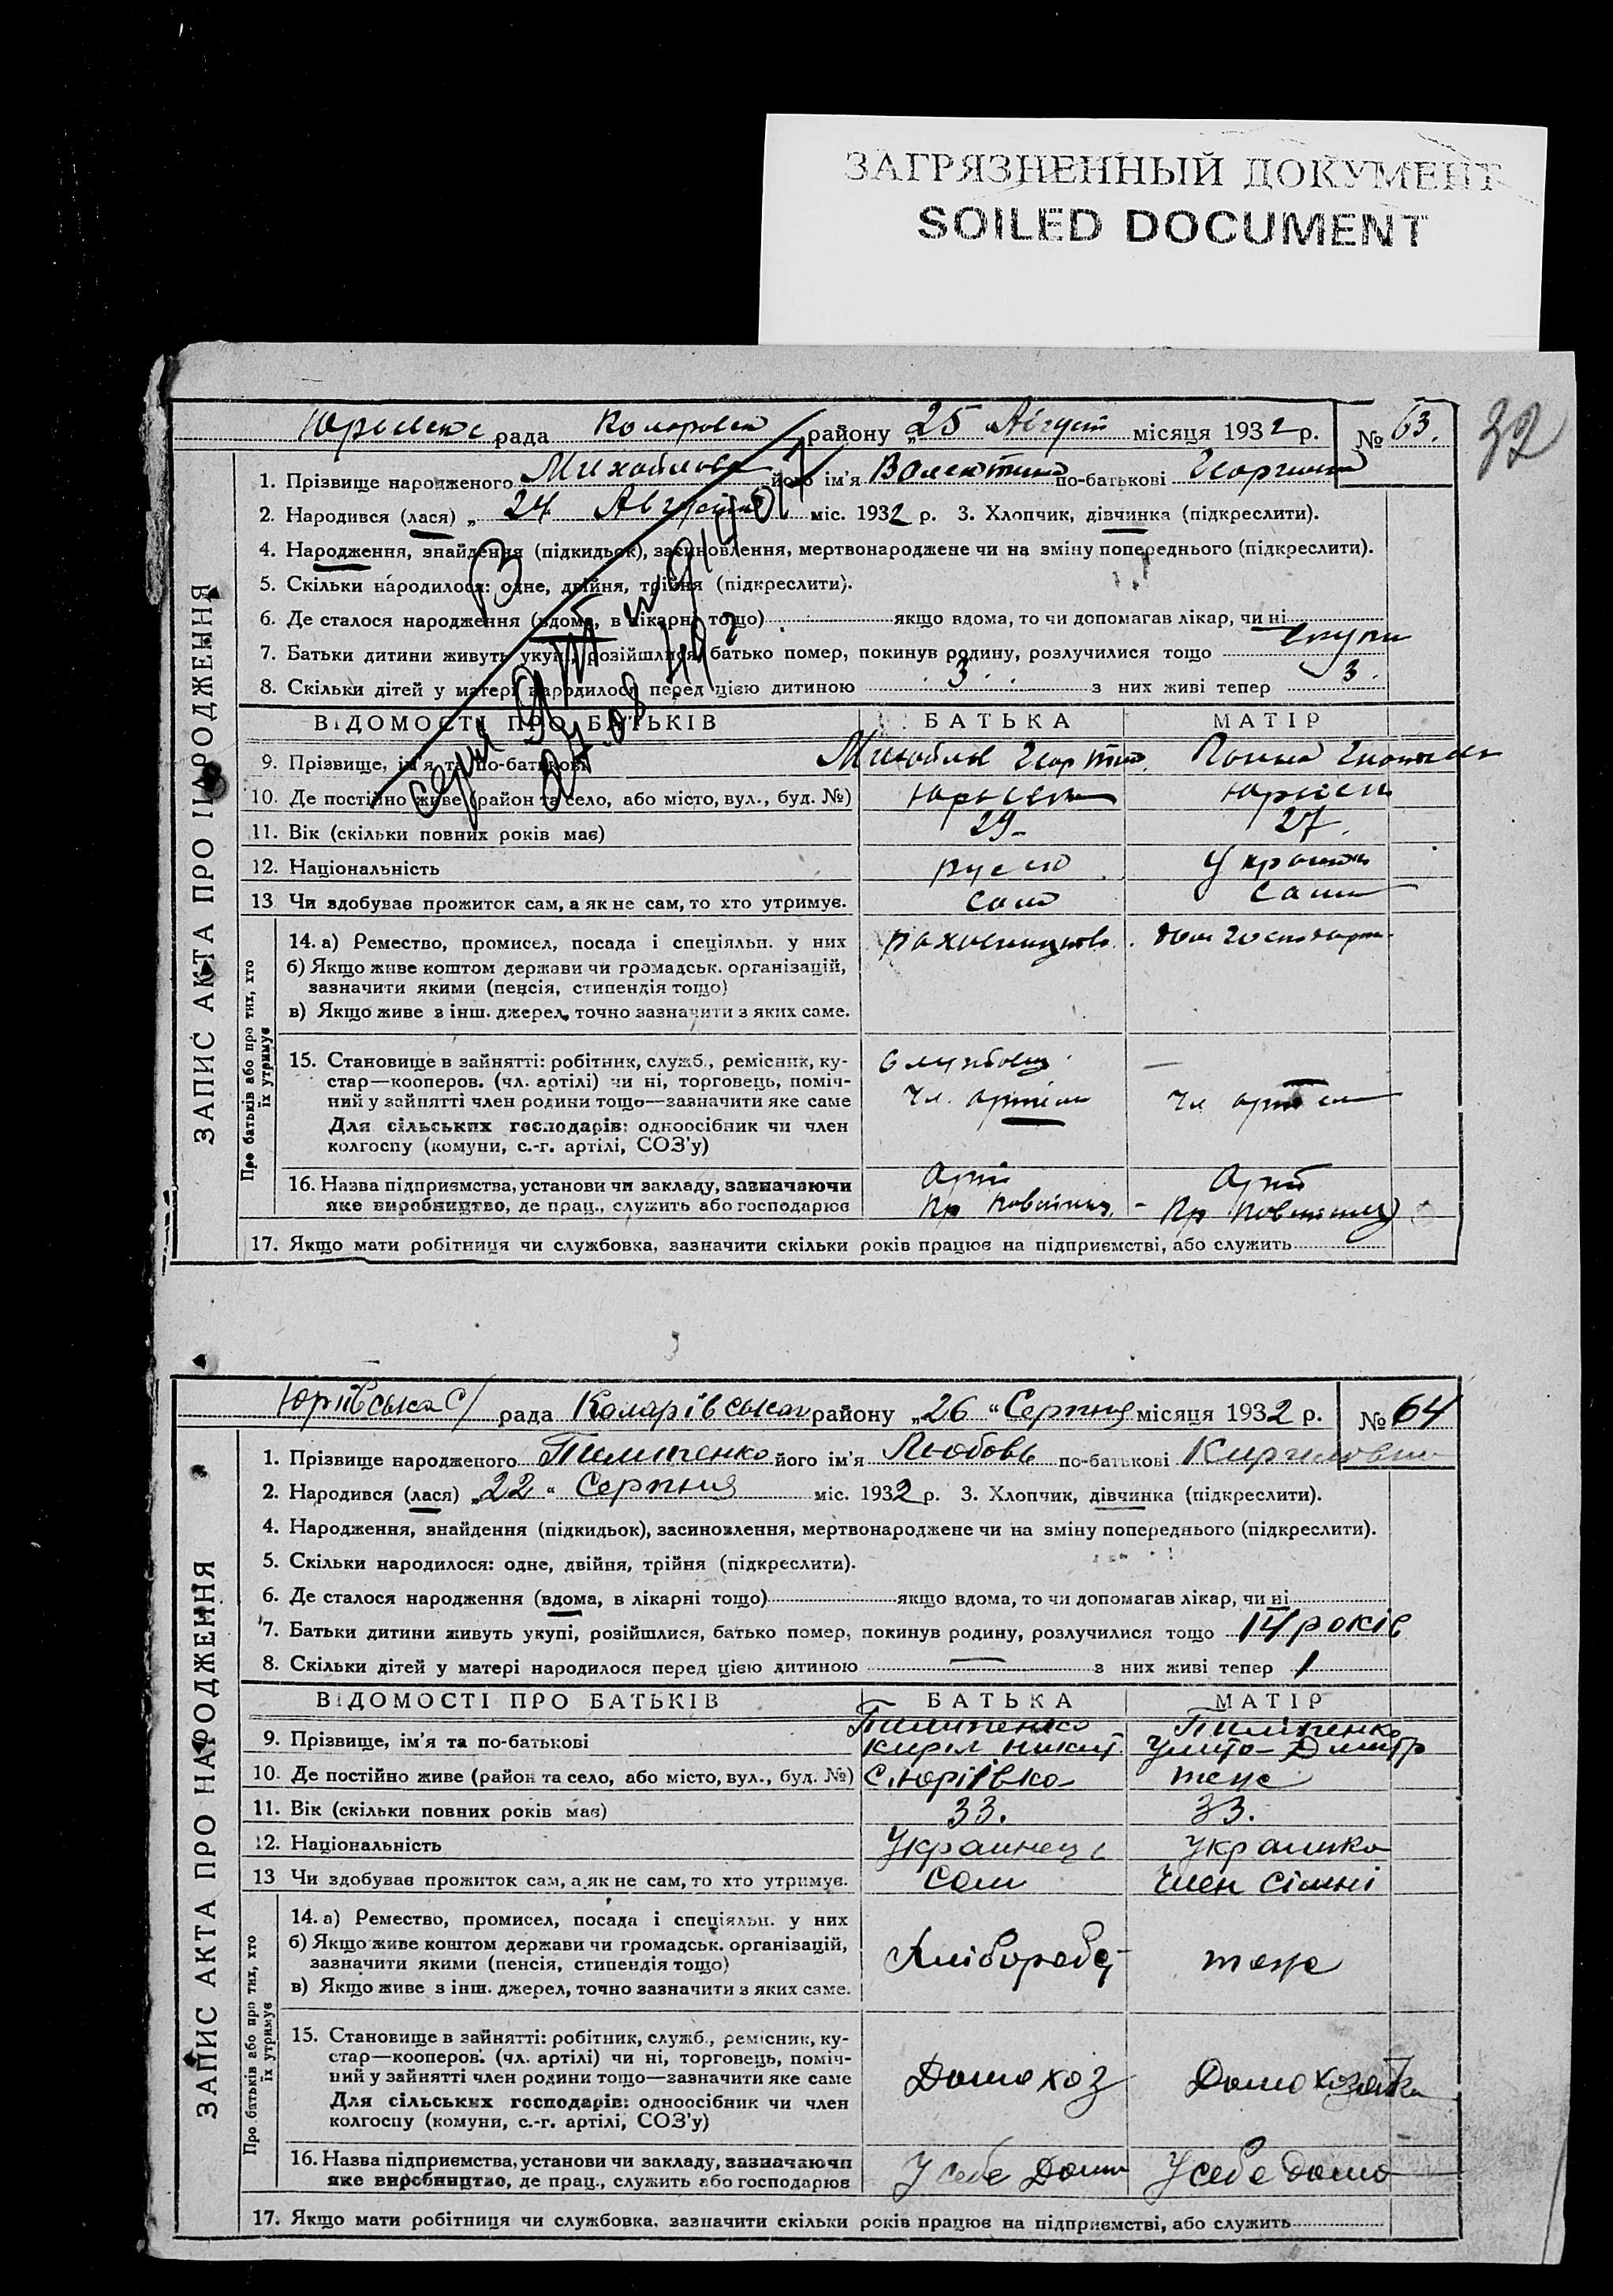 ЗАГРЯЗНЕННЫЙ ДОКУМЕНТ
SOILED DOCUMENT
32
рада району „25 Август місяця 1932 р. № 63.
ЗАПИС АКТА ПРО НАРОДЖЕННЯ
1. Прізвище народженого Михайлова його ім'я Валентина по-батькові
2. Народився (лася) „ 24 Августа міс. 1932 р. 3. Хлопчик, дівчинка (підкреслити).
4. Народження, знайдення (підкидьок), засиновлення, мертвонароджене чи на зміну попереднього (підкреслити).
5. Скільки народилося: одне, двійня, трійня (підкреслити).
6. Де сталося народження (вдома, в лікарні тощо) якщо вдома, то чи допомагав лікар, чи ні
7. Батьки дитини живуть укупі, розійшлися, батько помер, покинув родину, розлучилися тощо
8. Скільки дітей у матері народилося перед цією дитиною 3 з них живі тепер 3.
ВІДОМОСТІ ПРО БАТЬКІВ БАТЬКА МАТІР
9. Прізвище, ім'я та по-батькові
10. Де постійно живе (район та село, або місто, вул., буд. №)
11. Вік (скільки повних років має) 29 27
12. Національність
13 Чи здобуває прожиток сам, а як не сам, то хто утримує. сам сама
Про батьків або про тих, хто їх утримує
14. а) Ремество, промисел, посада і спеціяльн. у них
б) Якщо живе коштом держави чи громадськ. організацій,
зазначити якими (пенсія, стипендія тощо)
в) Якщо живе з інш. джерел, точно зазначити з яких саме.
15. Становище в зайнятті: робітник, служб., ремісник, ку-
стар—кооперов. (чл. артілі) чи ні, торговець, поміч-
ний у зайнятті член родини тощо—зазначити яке саме
Чл. артели Чл артели
Для сільських господарів: одноосібник чи член
колгоспу (комуни, с.-г. артілі, СОЗ'у)
16. Назва підприємства, установи чи закладу, зазначаючи
яке виробництво, де прац., служить або господарює
17. Якщо мати робітниця чи службовка, зазначити скільки років працює на підприємстві, або служить
Юріївська С/ рада Коларівська району „26 “ Серпня місяця 1932 р. № 64
ЗАПИС АКТА ПРО НАРОДЖЕННЯ
1. Прізвище народженого Пилипенко його ім'я Любовь по-батькові Кириловна
2. Народився (лася) „22 “ Серпня міс. 1932 р. 3. Хлопчик, дівчинка (підкреслити).
4. Народження, знайдення (підкидьок), засиновлення, мертвонароджене чи на зміну попереднього (підкреслити).
5. Скільки народилося: одне, двійня, трійня (підкреслити).
6. Де сталося народження (вдома, в лікарні тощо) якщо вдома, то чи допомагав лікар, чи ні
7. Батьки дитини живуть укупі, розійшлися, батько помер, покинув родину, розлучилися тощо 14 років
8. Скільки дітей у матері народилося перед цією дитиною — з них живі тепер 1
ВІДОМОСТІ ПРО БАТЬКІВ БАТЬКА МАТІР
Пилипенко Пиліпенко
9. Прізвище, ім'я та по-батькові Кирил Никит. Дмитр
10. Де постійно живе (район та село, або місто, вул., буд. №) С. Юріівка теже
11. Вік (скільки повних років має) 33. 33.
12. Національність Украинець Украинка
13 Чи здобуває прожиток сам, а як не сам, то хто утримує. Сам Член сімні
Про батьків або про тих, хто їх утримує
14. а) Ремество, промисел, посада і спеціяльн. у них
б) Якщо живе коштом держави чи громадськ. організацій, Хлібороб теже
зазначити якими (пенсія, стипендія тощо)
в) Якщо живе з інш. джерел, точно зазначити з яких саме.
15. Становище в зайнятті: робітник, служб., ремісник, ку-
стар—кооперов. (чл. артілі) чи ні, торговець, поміч-
ний у зайнятті член родини тощо—зазначити яке саме Домохоз Домохозяйка
Для сільських господарів: одноосібник чи член
колгоспу (комуни, с.-г. артілі, СОЗ'у)
16. Назва підприємства, установи чи закладу, зазначаючи У себе Дома У себе дома
яке виробництво, де прац., служить або господарює
17. Якщо мати робітниця чи службовка, зазначити скільки років працює на підприємстві, або служить